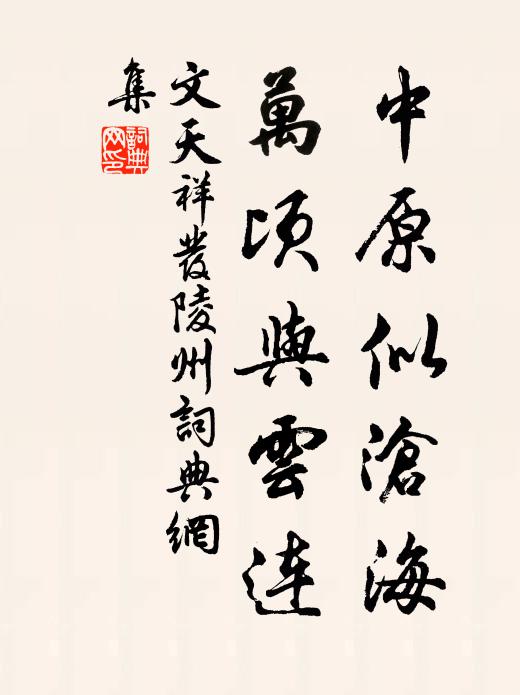 中原似滄海
萬頃與雲連
文天祥發陵州詞典網
集
詞典
网印